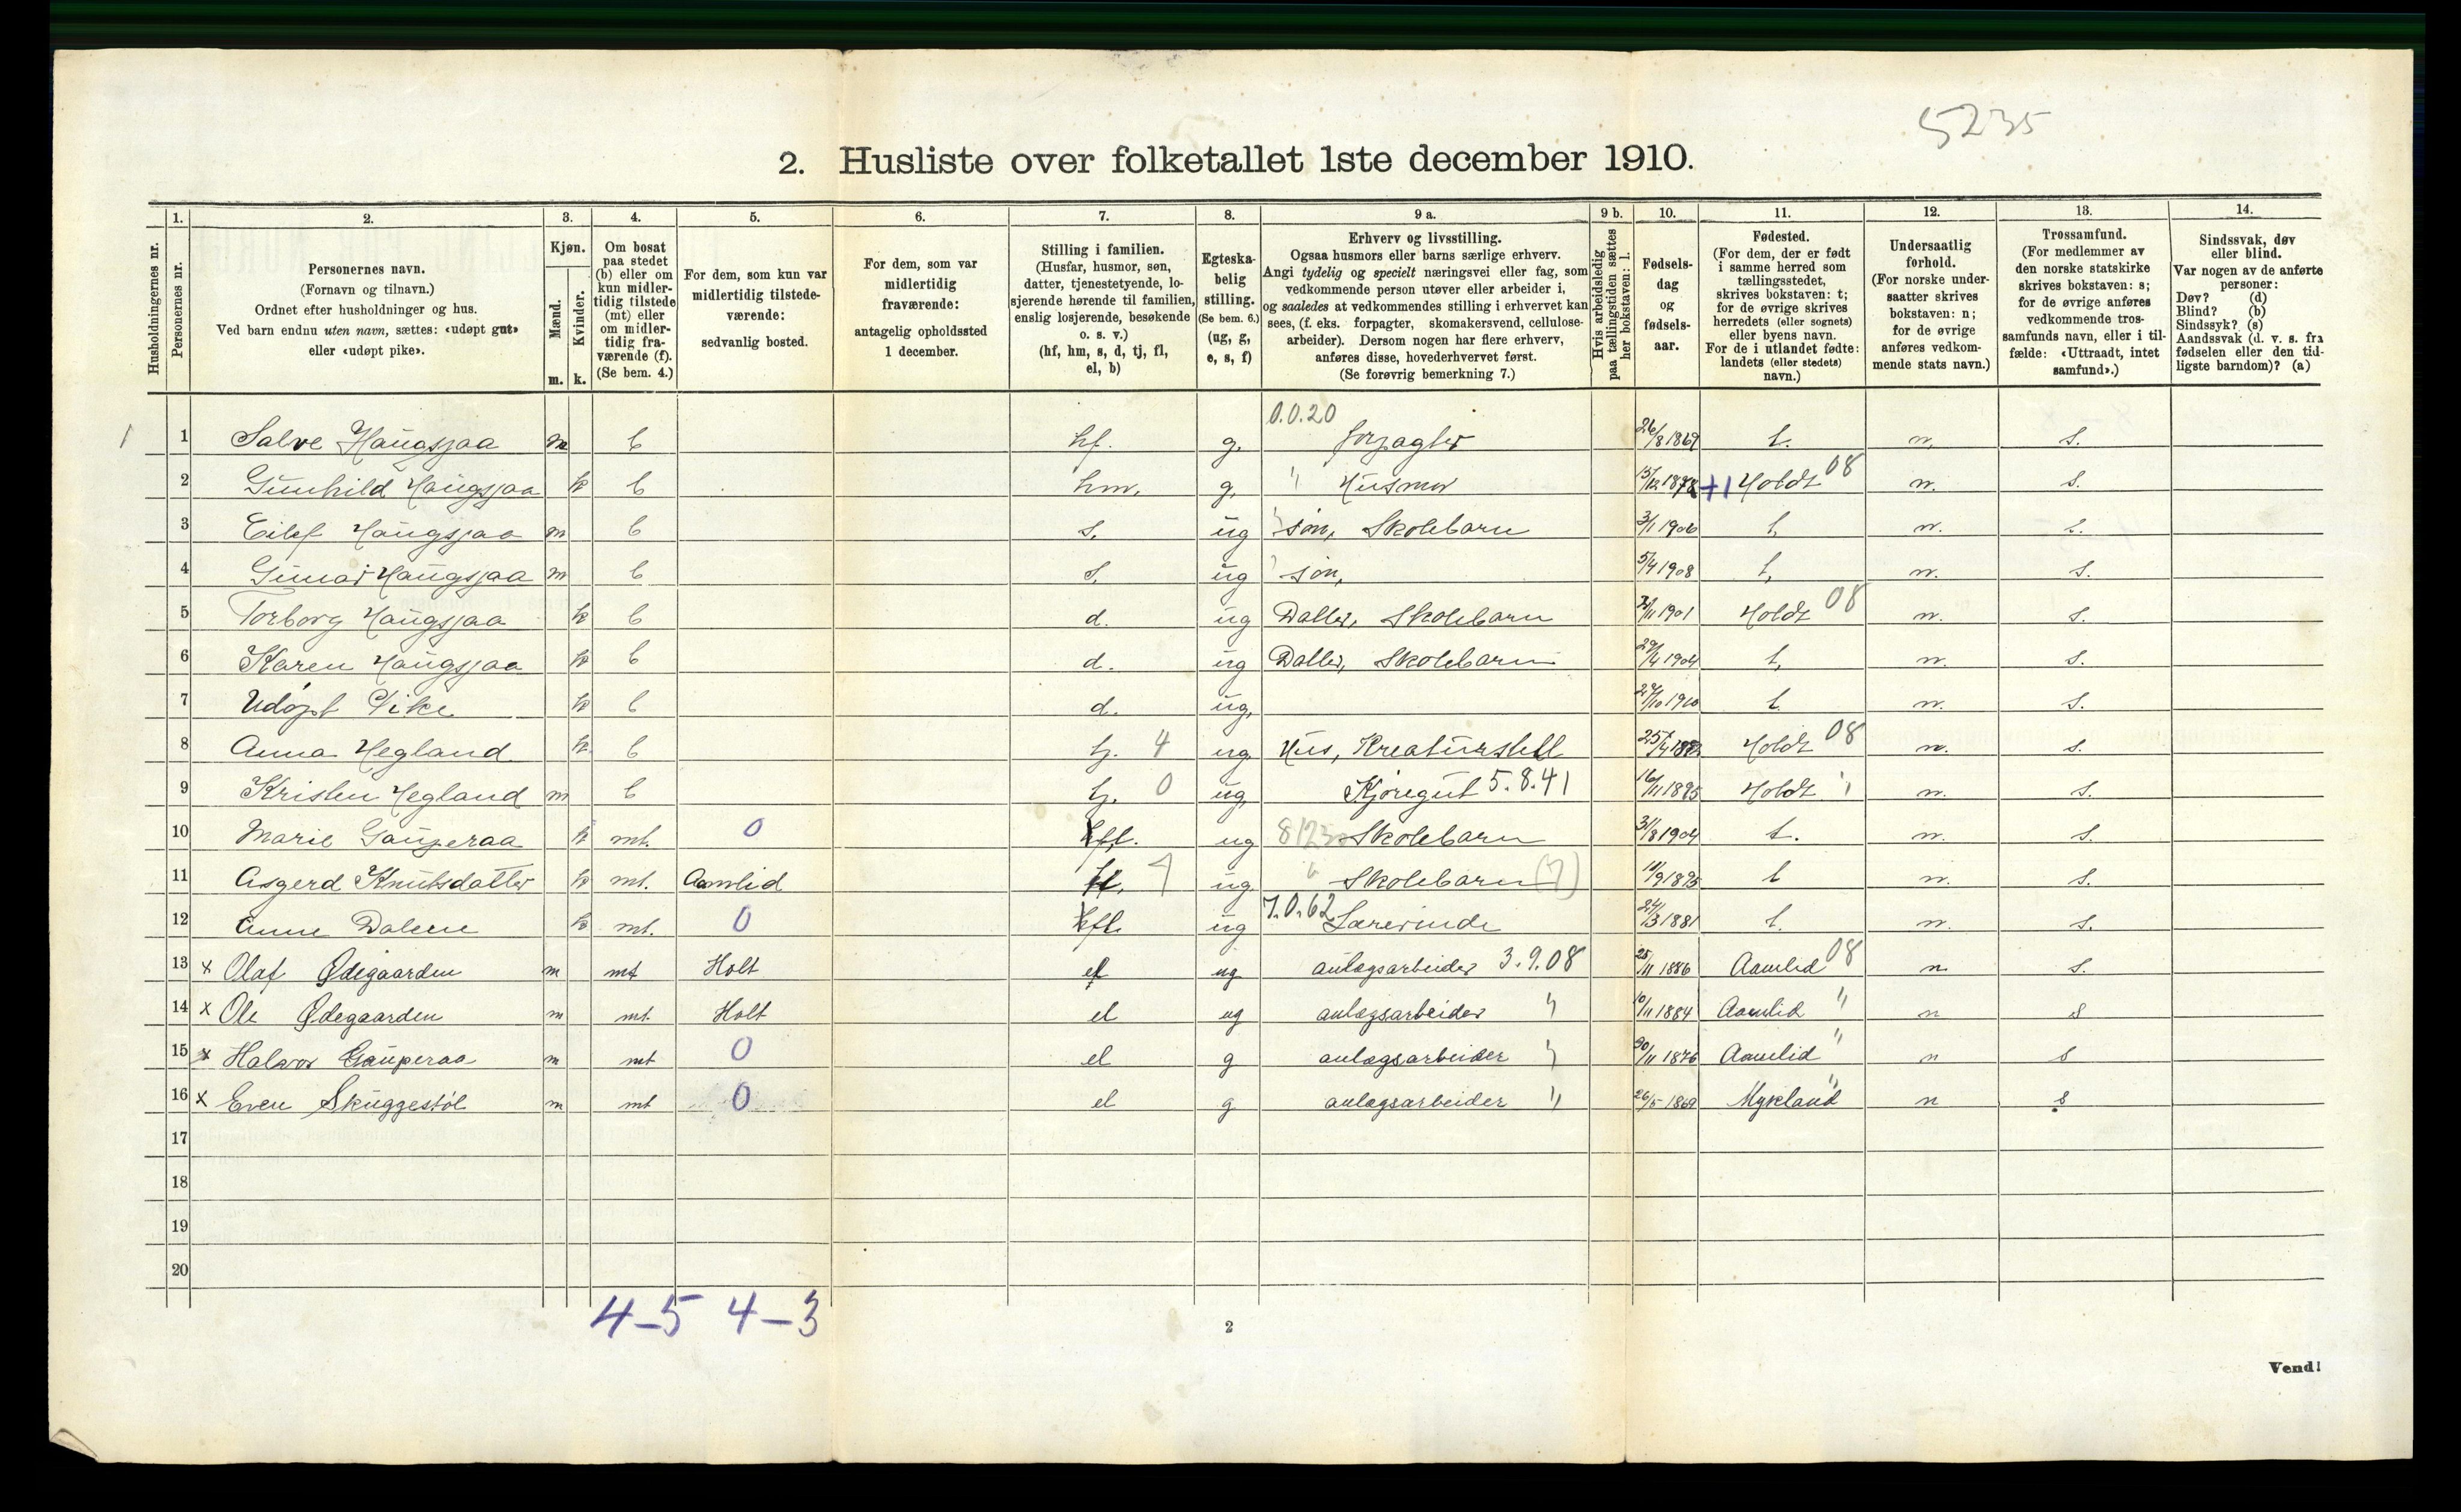 5235
2. Husliste over folketallet 1ste december 1910.
1. 2. 3. 4. 5. 6. 7. 8. 9 a. 9 b. 10. 11. 12. 13. 14.
Husholdningernes nr.
Personernes nr.
Personernes navn.
(Fornavn og tilnavn.)
Ordnet efter husholdninger og hus.
Ved barn endnu uten navn, sættes: «udøpt gut»
eller «udøpt pike».
Kjøn.
Mænd.
Kvinder.
m. k.
Om bosat
paa stedet
(b) eller om
kun midler-
tidig tilstede
(mt) eller
om midler-
tidig fra-
værende (f).
(Se bem. 4.)
For dem, som kun var
midlertidig tilstede-
værende:
sedvanlig bosted.
For dem, som var
midlertidig
fraværende:
antagelig opholdssted
1 december.
Stilling i familien.
(Husfar, husmor, søn,
datter, tjenestetyende, lo-
sjerende hørende til familien,
enslig losjerende, besøkende
o. s. v.)
(hf, hm, s, d, tj, fl,
el, b)
Egteska-
belig
stilling.
(Se bem. 6.)
(ug, g,
e, s, f)
Erhverv og livsstilling.
Ogsaa husmors eller barns særlige erhverv.
Angi tydelig og specielt næringsvei eller fag, som
vedkommende person utøver eller arbeider i,
og saaledes at vedkommendes stilling i erhvervet kan
sees, (f. eks. forpagter, skomakersvend, cellulose-
arbeider). Dersom nogen har flere erhverv,
anføres disse, hovederhvervet først.
(Se forøvrig bemerkning 7.)
Hvis arbeidsledig
paa tællingstiden sættes
her bokstaven: l.
Fødsels-
dag
og
fødsels-
aar.
Fødested.
(For dem, der er født
i samme herred som
tællingsstedet,
skrives bokstaven: t;
for de øvrige skrives
herredets (eller sognets)
eller byens navn.
For de i utlandet fødte:
landets (eller stedets)
navn.)
Undersaatlig
forhold.
(For norske under-
saatter skrives
bokstaven: n;
for de øvrige
anføres vedkom-
mende stats navn.)
Trossamfund.
(For medlemmer av
den norske statskirke
skrives bokstaven: s;
for de øvrige anføres
vedkommende tros-
samfunds navn, eller i til-
fælde: «Uttraadt, intet
samfund».)
Sindssvak, døv
eller blind.
Var nogen av de anførte
personer:
Døv? (d)
Blind? (b)
Sindssyk? (s)
Aandssvak (d. v. s. fra
fødselen eller den tid-
ligste barndom)? (a)
0.0.20
1 1 Salve Haugsjaa m b hf. g. forpagter 26/8 1869 t. n. s.
2 Gunhild Haugsjaa k b hm. g. " Husmor 15/12 1878 +1 Holdt 08 n. s.
3 Eilef Haugsjaa m b s. ug søn, Skolebarn 3/1 1906 t, n. s.
4 Gunar Haugsjaa m b s. ug søn, 5/4 1908 t, n. s.
5 Torborg Haugsjaa k b d. ug Datter, Skolebarn 1901 Holdt 08 n. s.
6 Karen Haugsjaa k b d. ug Datter, Skolebarn 29/4 1904 t, n. s.
7 Udøpt Pike k b d. ug, 1910 t. n. s.
8 Anna Hegland k b tj. 4 ug Hus, Kreaturstell Holdt 08 n. s.
9 Kristen Hegland m b tj. 0 ug, Kjøregut 5.8.41 16/11 1895 Holdt " n. s.
10 Marie Gauperaa k mt. 0 fl. ug Skolebarn 31/8 1904 t. n. s.
11 Asgerd Knutsdatter k mt. Aamlid ug. Skolebarn (7) t n. s.
12 Anne Dalene k mt. 0 fl. ug 7.0.62 Lærerinde 24/3 1881 t. n. s.
13 x Olaf Ødegaarden m mt Holt el ug anlægsarbeider 3.9.08 25/11 1886 Aamlid 08 n s.
14 x Ole Ødegaarden m mt. Holt el ug anlægsarbeider " 10/11 1884 Aamlid " n s
15 x Halvor Gauperaa m mt 0 el g anlægsarbeider " 30/11 1876 Aamlid " n s
16 x Even Skuggestøl m mt 0 el g anlægsarbeider " 26/5 1869 Mykland " n s
17
18
19
20
4-5 4-3
2
Vend!